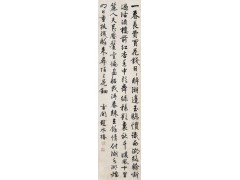 一春長費買花錢日日醉湖邊玉驄慣識西路驕嘶
過沽酒樓前紅杏香中歌舞綠楊影裏秋千暖風十里
麗人天花壓鬢雲偏畫船載春歸去餘情付湖水湖煙
明日重扶殘醉來尋陌上花鈿